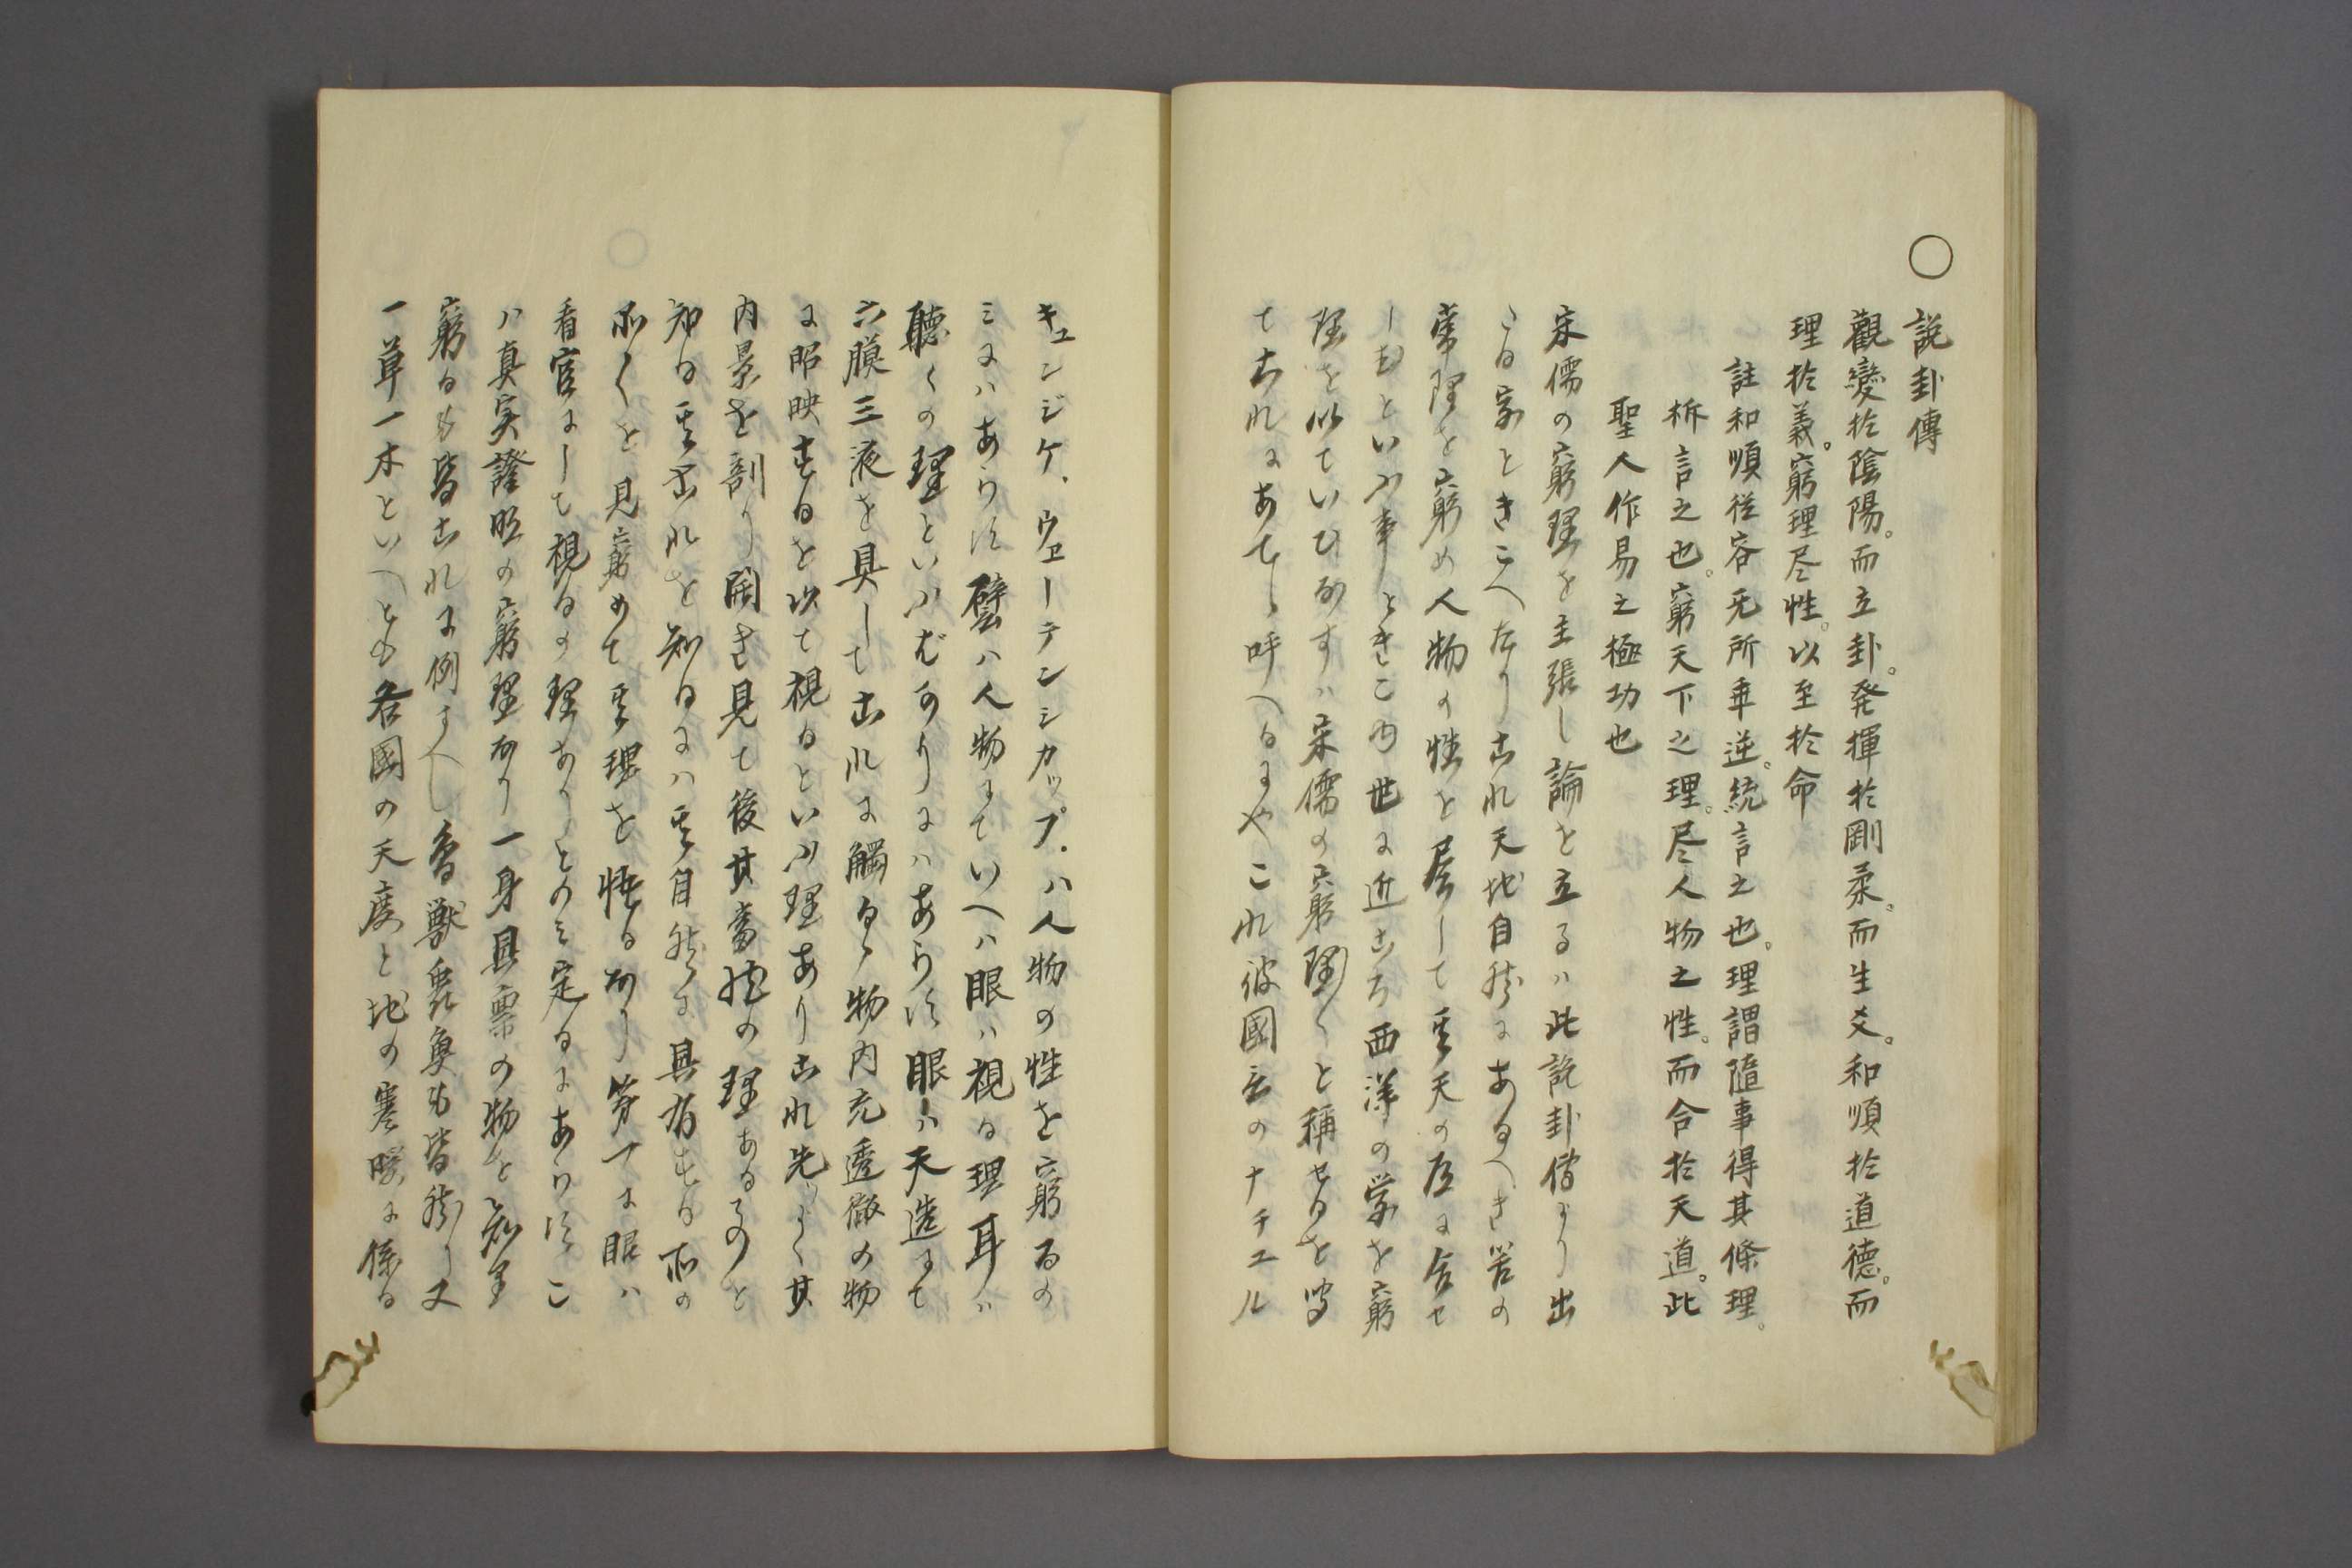 ○
説卦傳
觀變於陰陽。而立卦。発揮於剛柔。而生爻。和順於道徳。而
理於義。窮理尽性。以至於命
註和順従容无所乖逆。統言之也。理謂隨事得其條理。
析言之也。窮天下之理。尽人物之性。而合於天道。此
聖人作易之極功也
宋儒の窮理を主張し論を立るハ此説卦傳より出
たる家ときこへたりこれ天地自然にあるへき苦の
常理を窮め人物の性を尽して其天の　に合せ
しむといふ事ときこゆ世に近ころ西洋の学を窮
理を以ていひなすハ宋儒の窮理〱と稱せるを
てこれにあてゝ呼へるにやこれ彼國言のナチユル
キュンジケ.ウェーテンシカップ.ハ人物の性を窮るの
ミにハあらす譬ハ人物にていへハ眼ハ視る理耳ハ
聴くの理といふはかりにハあらす眼ハ天造にて
六膜三液を具してこれに觸るゝ物内充透徹の物
に照映するを以て視るといふ理ありこれ先ツよく其
内景を剖り開き見て後其當然の理あるものと
知る其出れを知るにハ其自然に具有する所の
所〱を見窮めて其理を悟るなり第一に眼ハ
看官にして視るの理ありとのミ定るにあらすこ
ハ真実證明の窮理なり一身具禀の物を知里
窮るも皆これに例すへし鳥獣蟲魚も皆然り又
一草一木といへとも各國の天度と地の寒暖に係る